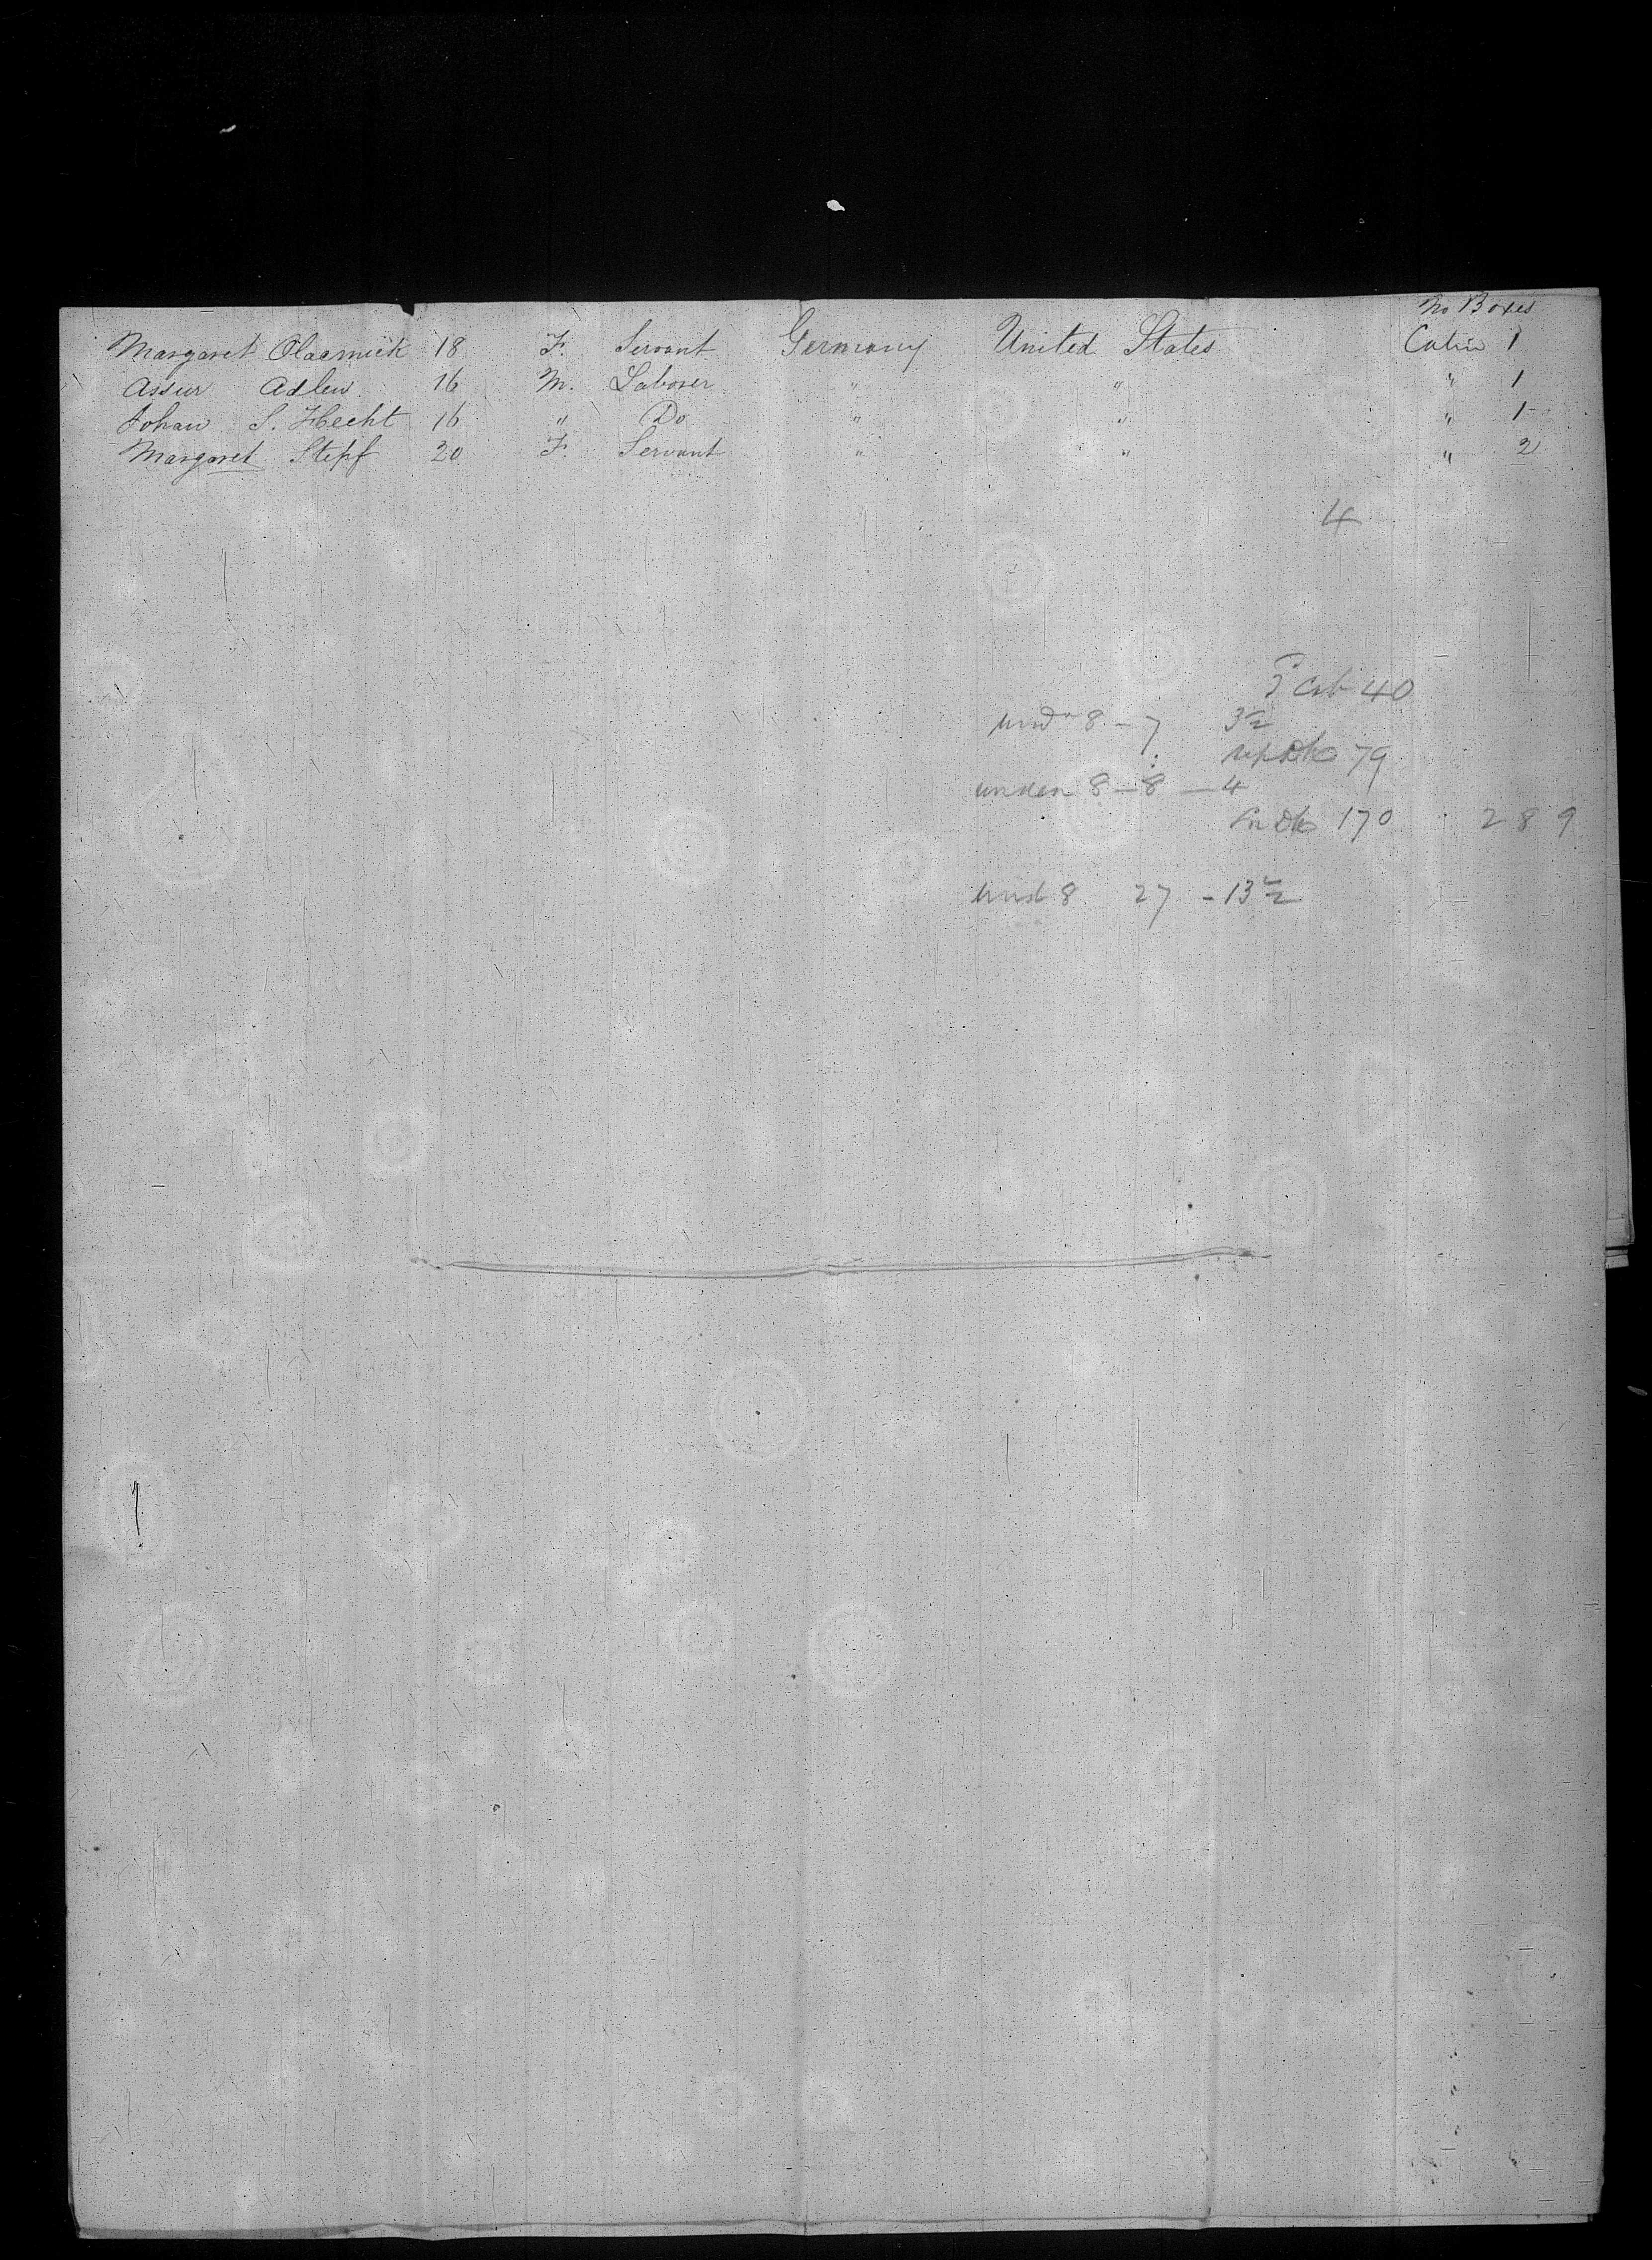 No Boxes
Margaret Olaarnick 18 F. Servant Germany United States Cabin 1
Assur Adlew 16 M. Laborer " " " 1
Johan S. Hecht 16 " Do " " " 1
Margaret Stepf 20 F. Servant " " " 2
4
Cab 40
und 8 - 7 3½
upDks 79
under 8 - 8 - 4
Dks 170 289
und 8 27 - 13½